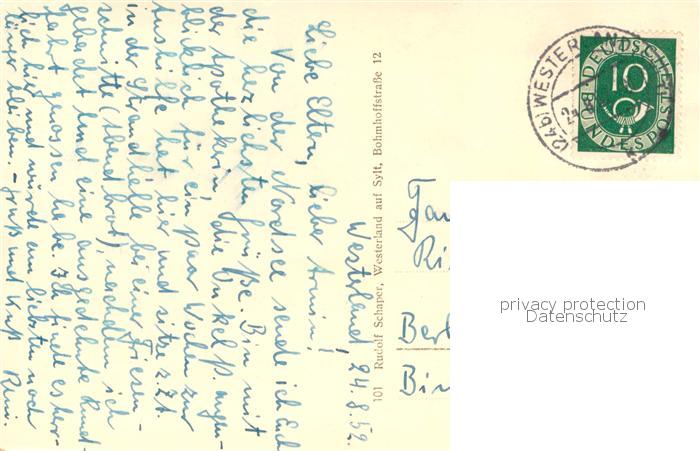 Westerland 24.8.52.
Liebe Eltern, lieber Armin!
Von der Nordsee sende ich Euch
die herzlichsten Grüße. Bin mit
der Apothekerin, die Onkel P. augen-
blicklich für ein paar Wochen zur
Aushilfe hat hier und sitze z.Zt.
in der Strandhalle bei einer Friesen-
schnitte (Abendbrot), nachdem ich
gebadet und eine ausgedehnte Rund-
fahrt genossen habe. Ich finde es herr-
lich hier und würde am liebsten noch
länger bleiben. - Gruß und Kuß
101 Rudolf Schaper, Westerland auf Sylt, Bohmhoffstraße 12
(24b) WESTERLAND
DEUTSCHE
BUNDESPOST
10
Berl
privacy protection
Datenschutz